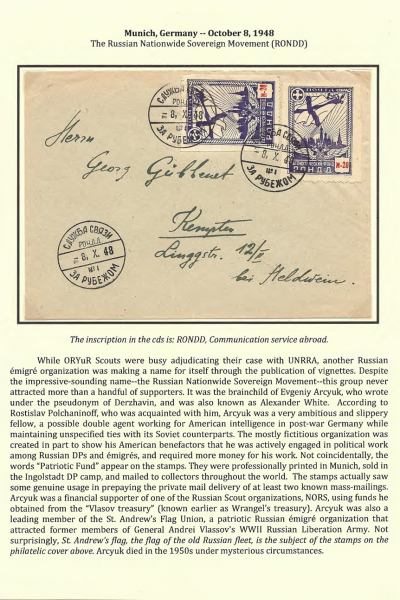 Munich, Germany -- October 8, 1948
The Russian Nationwide Sovereign Movement (RONDD)
СЛУЖБА СВЯЗИ
РОНДД
8. X. 48
№1
ЗА РУБЕЖОМ
ПОЧТА
РОНДД
СЛУЖБА СВЯЗИ
РОНДД
8. X. 48
№1
ЗА РУБЕЖОМ
Herrn
Georg
Kempten
Linggstr. 12/II
bei
СЛУЖБА СВЯЗИ
РОНДД
8. X. 48
№1
ЗА РУБЕЖОМ
The inscription in the cds is: RONDD, Communication service abroad.
While ORYuR Scouts were busy adjudicating their case with UNRRA, another Russian
émigré organization was making a name for itself through the publication of vignettes. Despite
the impressive-sounding name--the Russian Nationwide Sovereign Movement--this group never
attracted more than a handful of supporters. It was the brainchild of Evgeniy Arcyuk, who wrote
under the pseudonym of Derzhavin, and was also known as Alexander White. According to
Rostislav Polchaninoff, who was acquainted with him, Arcyuk was a very ambitious and slippery
fellow, a possible double agent working for American intelligence in post-war Germany while
maintaining unspecified ties with its Soviet counterparts. The mostly fictitious organization was
created in part to show his American benefactors that he was actively engaged in political work
among Russian DPs and émigrés, and required more money for his work. Not coincidentally, the
words "Patriotic Fund" appear on the stamps. They were professionally printed in Munich, sold in
the Ingolstadt DP camp, and mailed to collectors throughout the world. The stamps actually saw
some genuine usage in prepaying the private mail delivery of at least two known mass-mailings.
Arcyuk was a financial supporter of one of the Russian Scout organizations, NORS, using funds he
obtained from the "Vlasov treasury" (known earlier as Wrangel's treasury). Arcyuk was also a
leading member of the St. Andrew's Flag Union, a patriotic Russian émigré organization that
attracted former members of General Andrei Vlassov's WWII Russian Liberation Army. Not
surprisingly, St. Andrew's flag, the flag of the old Russian fleet, is the subject of the stamps on the
philatelic cover above. Arcyuk died in the 1950s under mysterious circumstances.